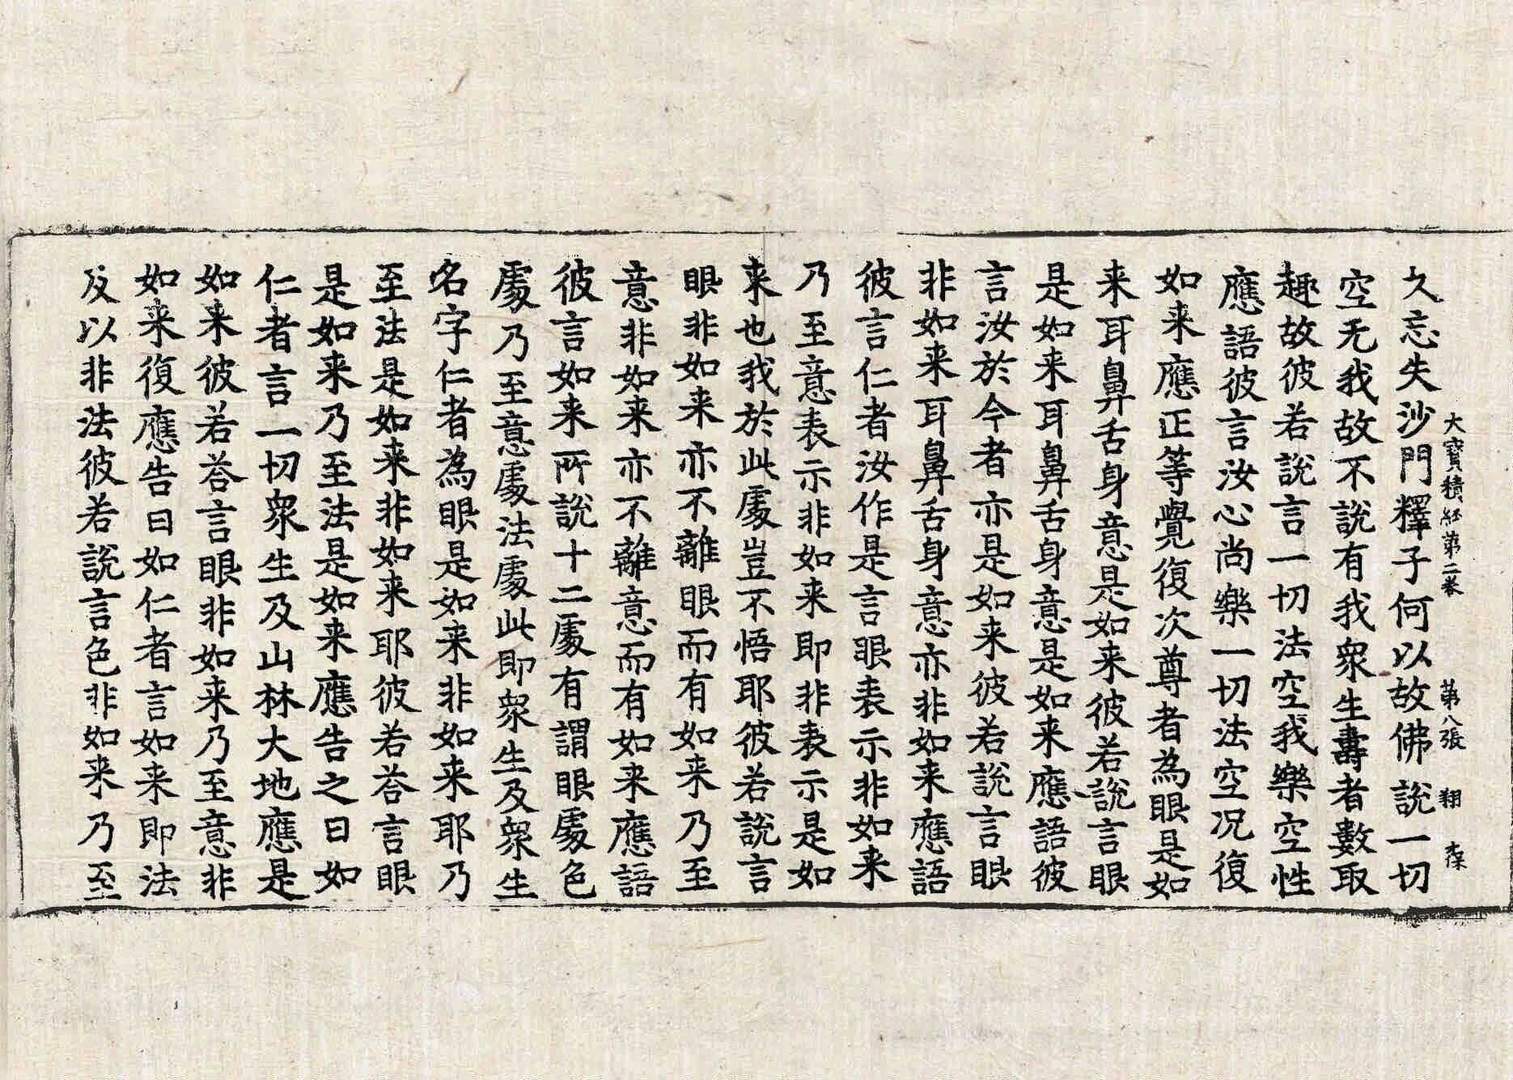 大寶積經第二卷 第八張 翔
久忘失沙門釋子何以故佛說一切
空无我故不說有我衆生壽者數取
趣故彼若說言一切法空我樂空性
應語彼言汝心尚樂一切法空况復
如来應正等覺復次尊者為眼是如
来耳鼻舌身意是如来彼若說言眼
是如来耳鼻舌身意是如来應語彼
言汝於今者亦是如来彼若說言眼
非如来耳鼻舌身意亦非如来應語
彼言仁者汝作是言眼表示非如来
乃至意表示非如来即非表示是如
来也我於此處豈不悟耶彼若說言
眼非如来亦不離眼而有如来乃至
意非如来亦不離意而有如来應語
彼言如来所說十二處有謂眼處色
處乃至意處法處此即衆生及衆生
名字仁者為眼是如来非如来耶乃
至法是如来非如来耶彼若荅言眼
是如来乃至法是如来應告之曰如
仁者言一切衆生及山林大地應是
如来彼若荅言眼非如来乃至意非
如来復應告曰如仁者言如来即法
及以非法彼若說言色非如来乃至